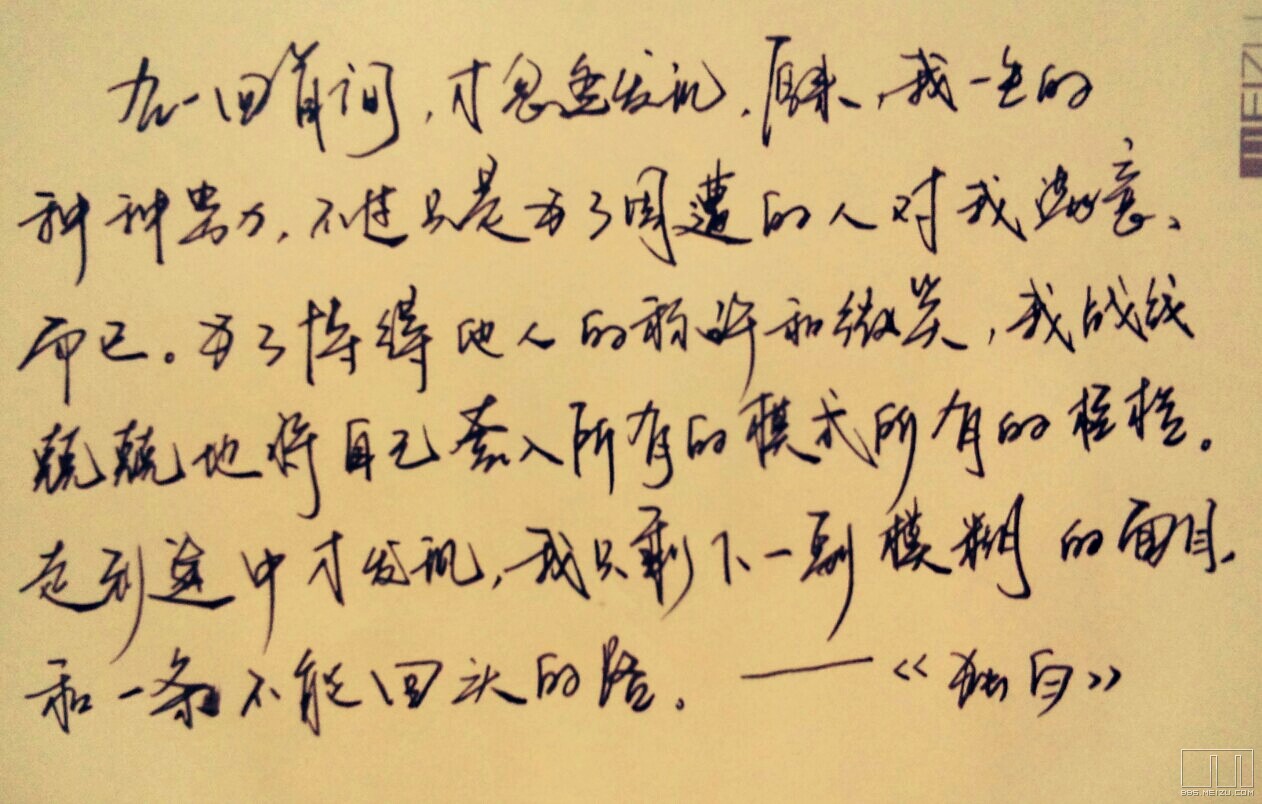 在一回首间，才忽然发现，原来，我一生的
种种努力，不过只是为了周遭的人对我满意、
而已。为了博得他人的称许和微笑，我战战
兢兢地将自己套入所有的模式所有的桎梏。
走到途中才发现，我只剩下一副模糊的面目，
和一条不能回头的路。——《独白》
MEIZU
BBS.MEIZU.COM